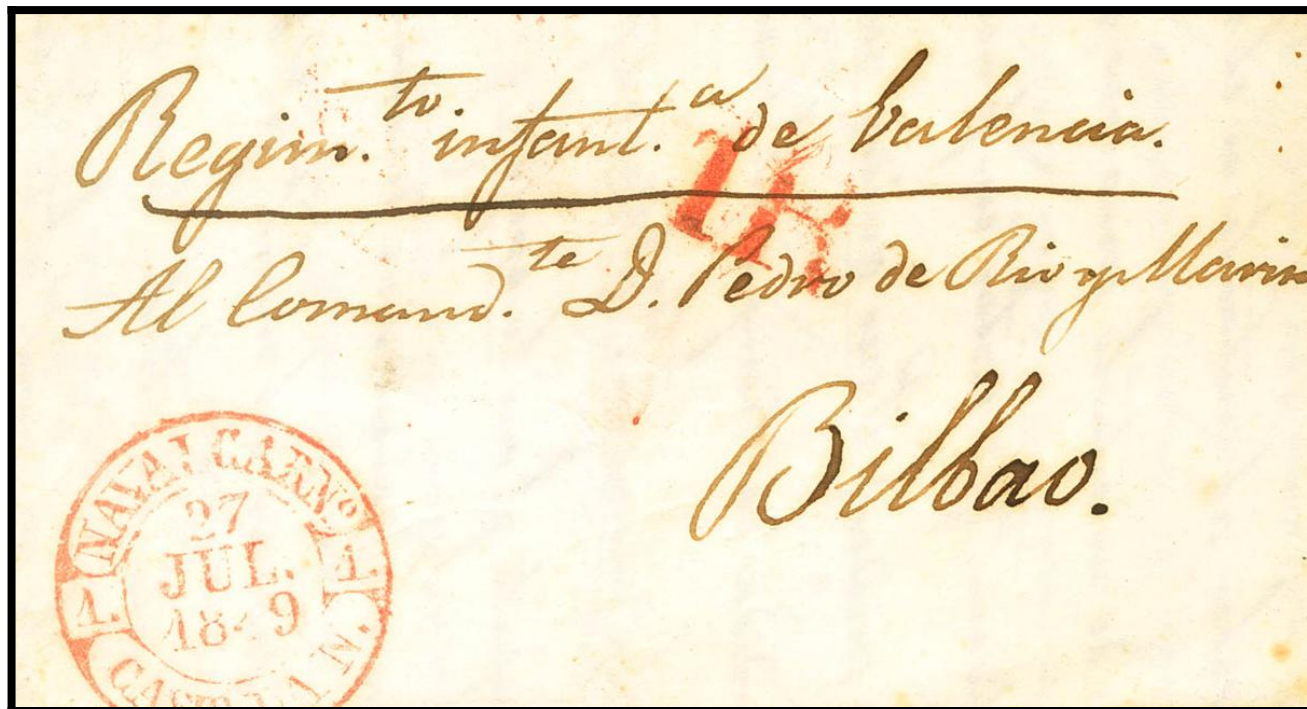 Regim.to infant.a de Valencia.
1R.
Al Comand.te D. Pedro de Rio y Marin
Bilbao.
NAVALCARNº
27
JUL.
1849
1 1
CAST. LA N.